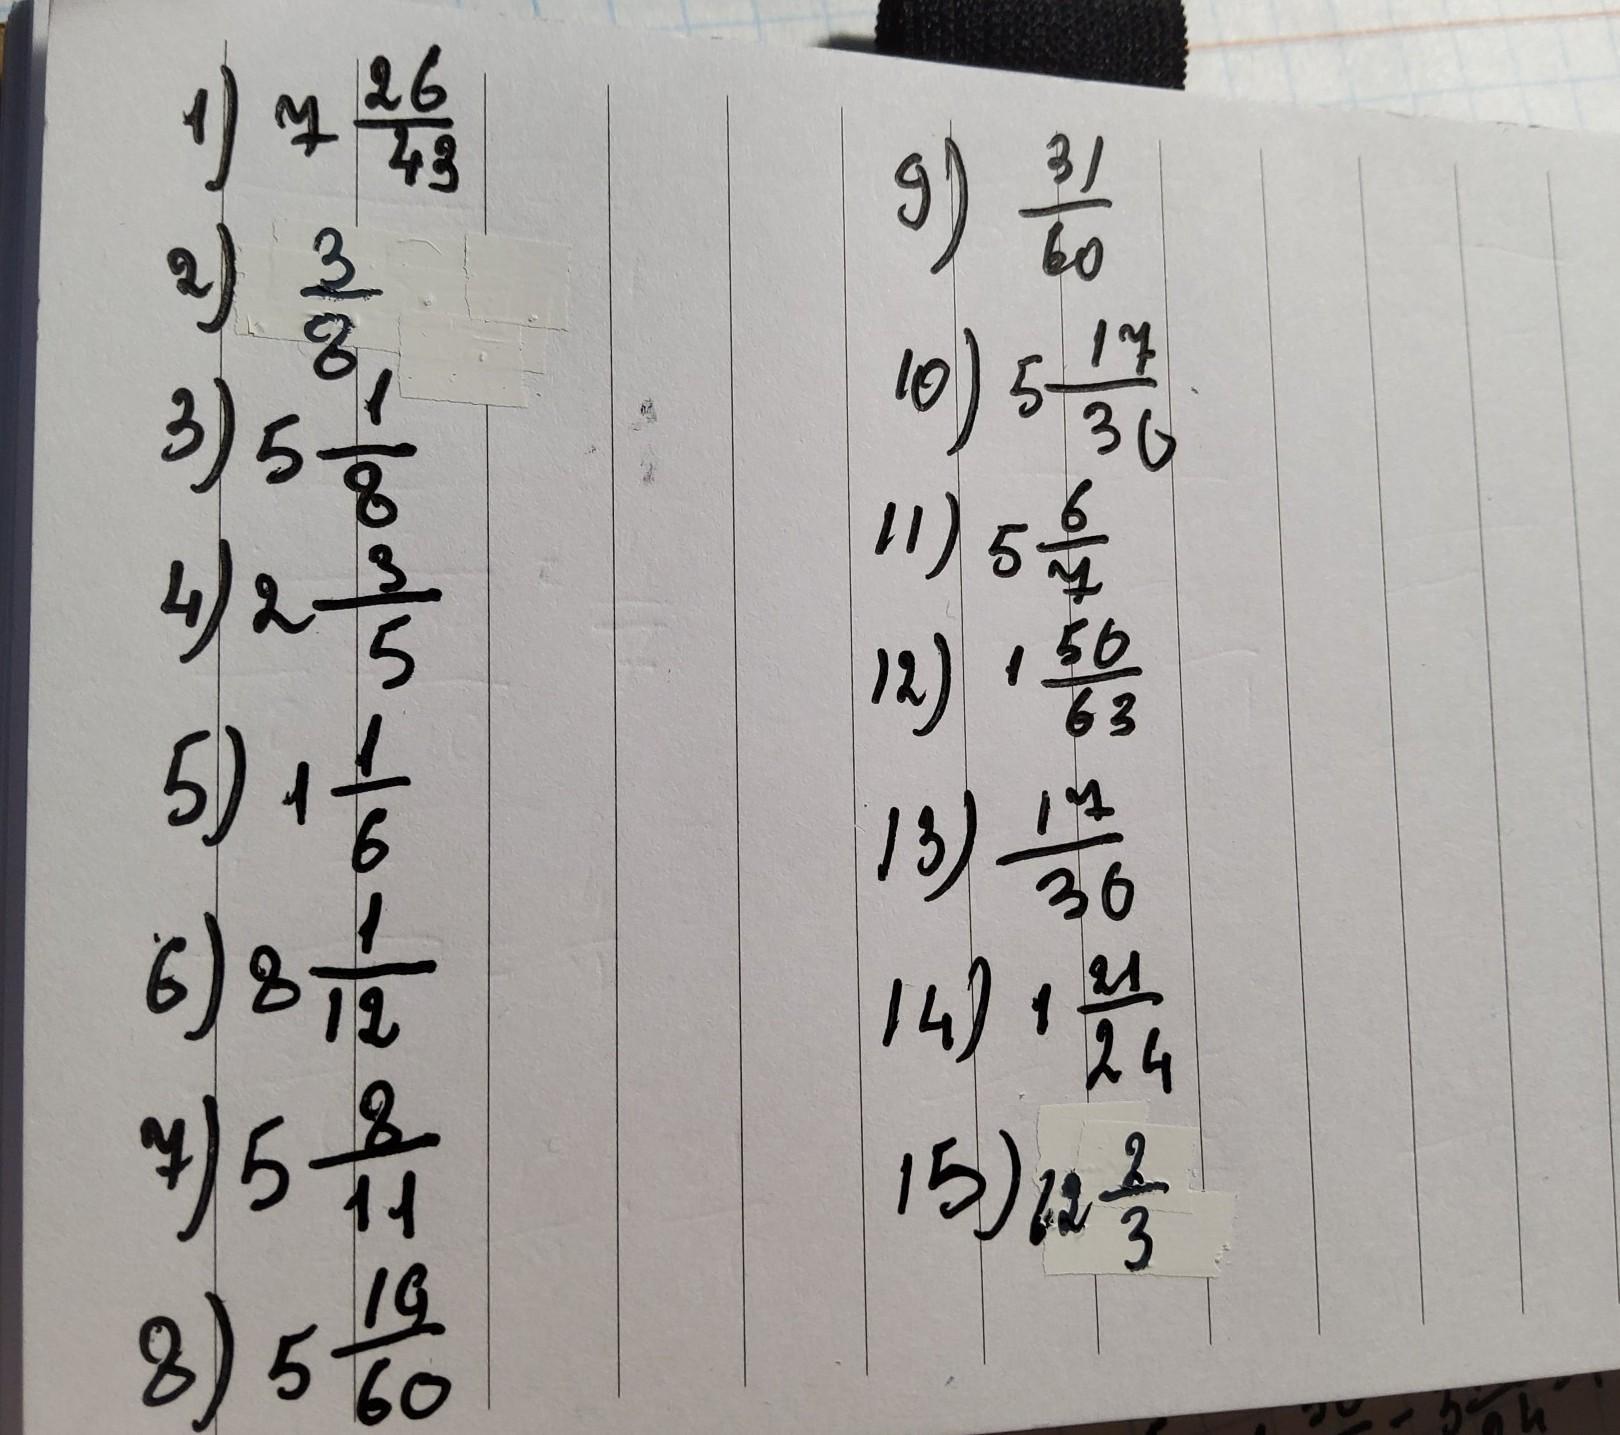 1) 7 26/43
2) 3/8
3) 5 1/8
4) 2 3/5
5) 1 1/6
6) 8 1/12
7) 5 8/11
8) 5 19/60
9) 31/60
10) 5 17/30
11) 5 6/7
12) 1 50/63
13) 17/30
14) 1 21/24
15) 12 2/3